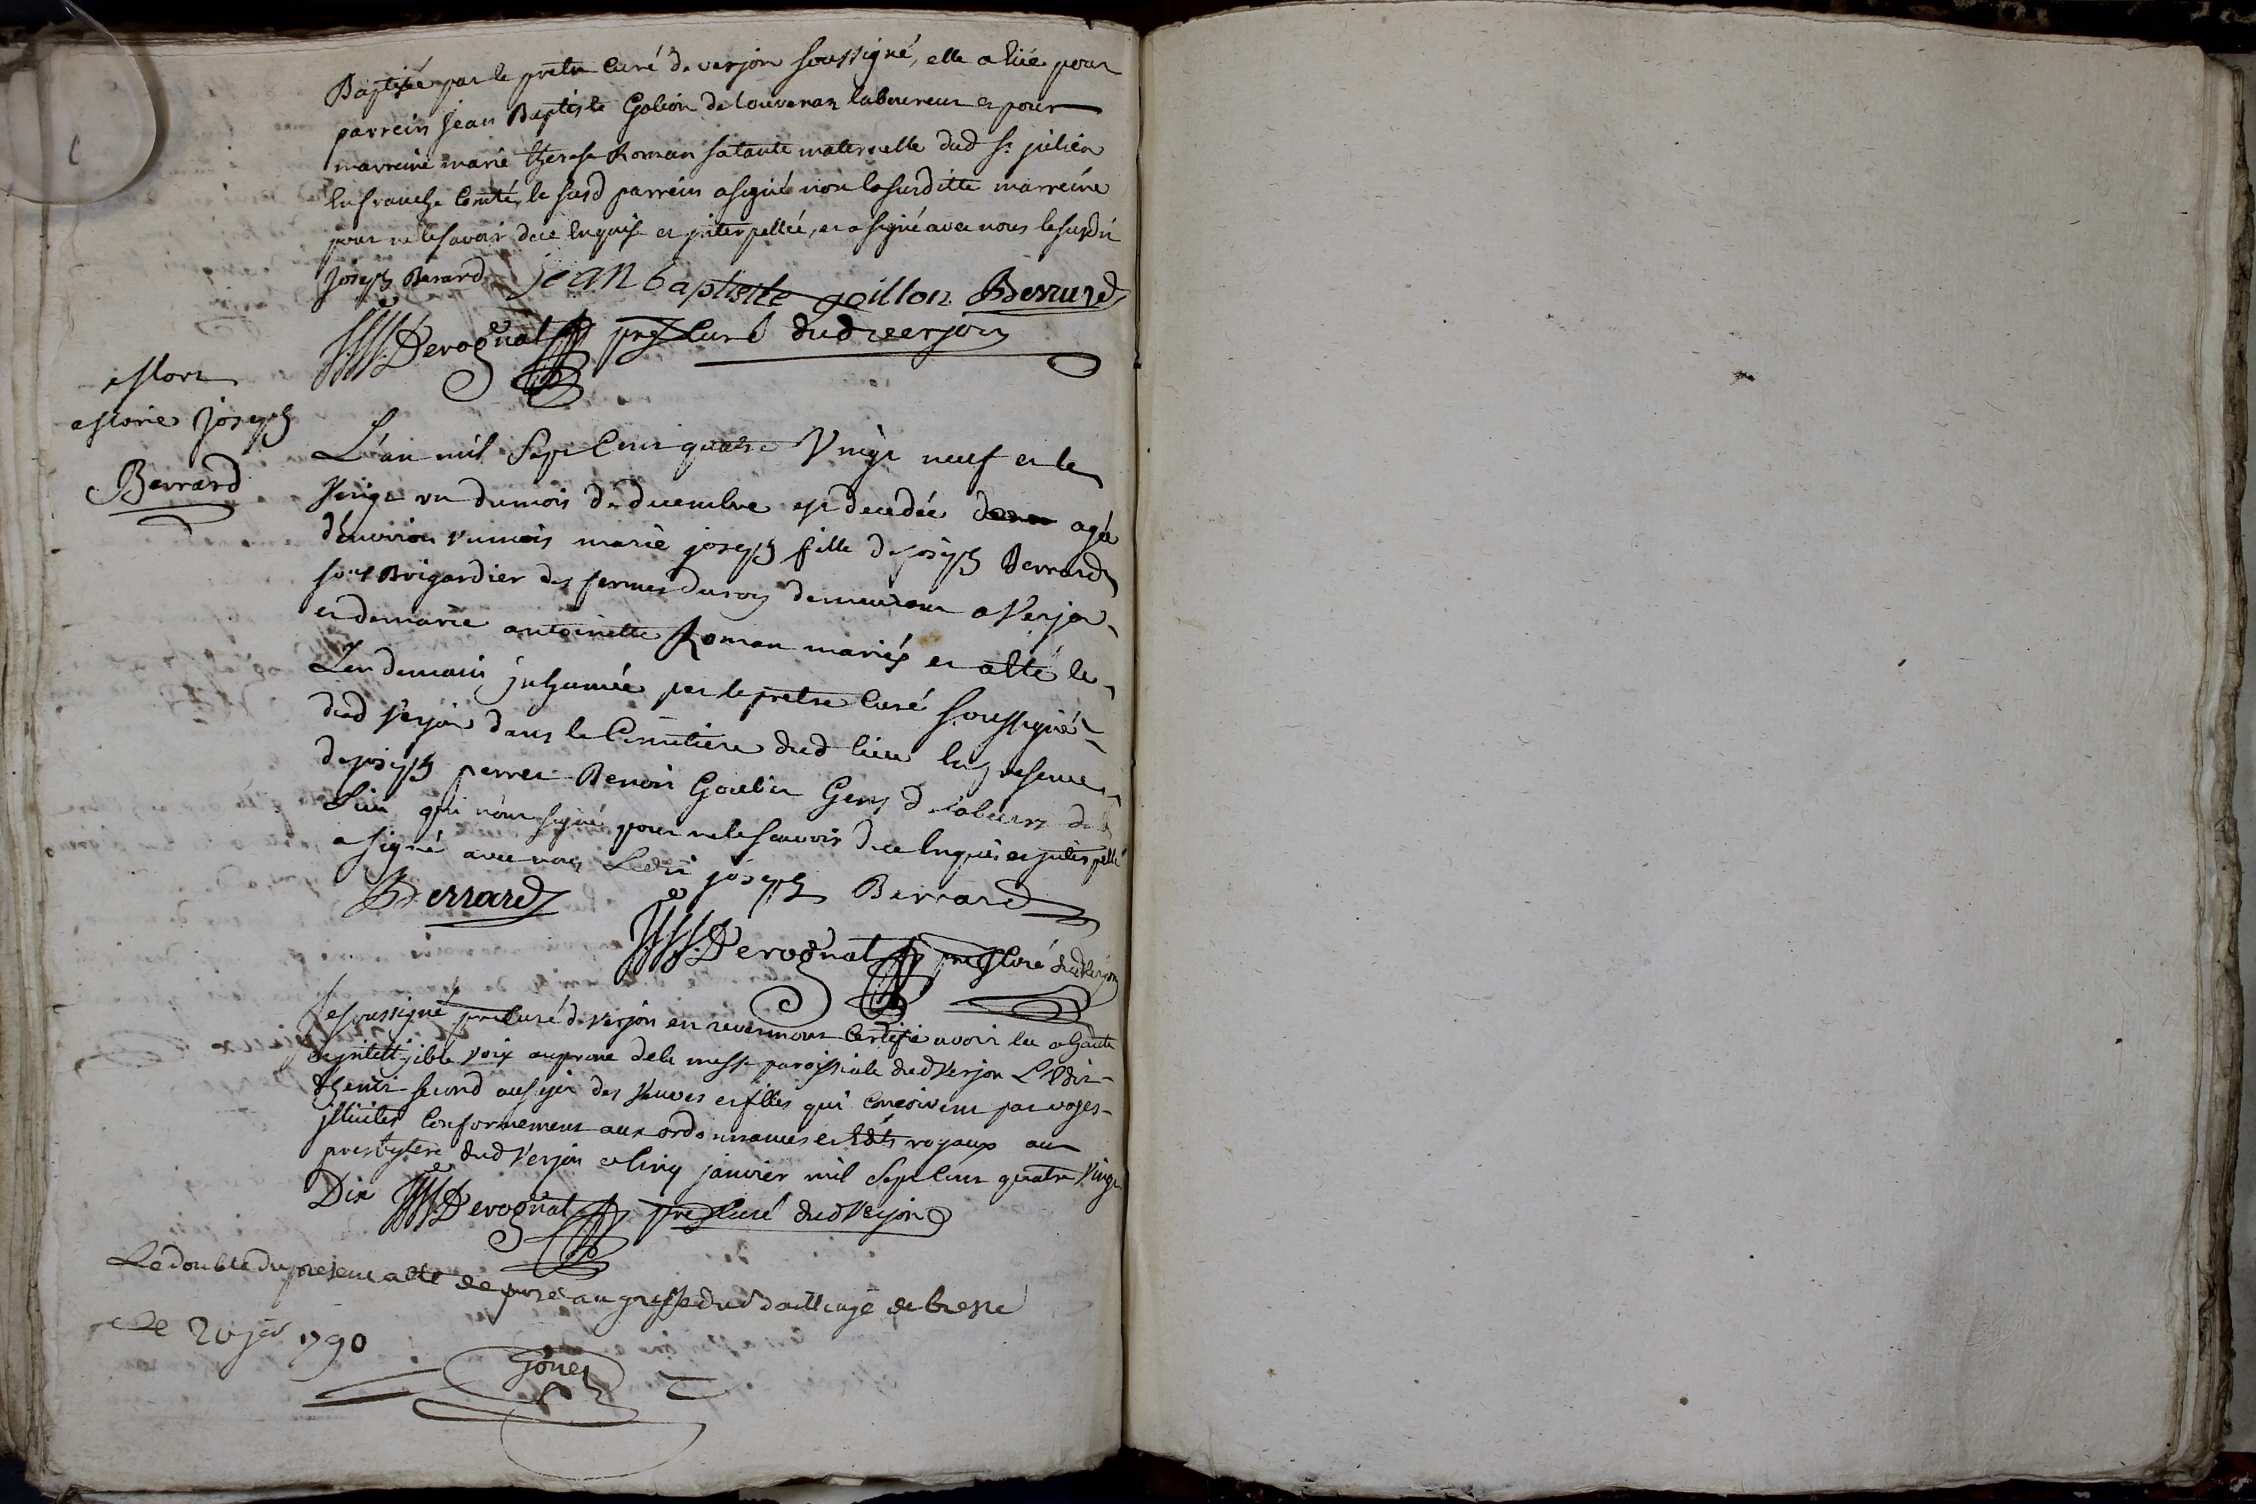 Baptisée par le pretre curé de verjon soussigné, elle a eüe pour
parrein jean Baptiste Golion de louvenar laboureur et pour
marreine marie therese Roman sa tante maternelle dud st julien
en franche Comté, le susd parrein a signé non la susditte marreine
pour ne le savoir de ce enquise et interpellée, et a signé avec nous le susdit
joseph Berard jean baptiste goillon Berrard
Derognat pretre Curé dud verjon
Mort
Marie joseph
Berrard
L'an mil sept cent quatre vingt neuf et le
vingt un du mois de decembre est decedée agée
d'environ un mois marie joseph fille de joseph Berrard
sous Brigardier des fermes du roy demeurant a Verjon
et de marie antoinette Roman mariés et a été le
Lendemain inhumée par le pretre curé soussigné
dud Verjon dans le Cimetiere dud lieu en presence
de joseph perret Benoit Goubin Gens de labeurs dud
Lieu qui n'ont signé pour ne le scavoir de ce enquis et interpellé
a signé avec nous Ledit joseph Berrard
Berrard
Derognat pretre Curé dud Verjon
Je soussigné pretre curé de Verjon en revermont Certifie avoir lu a haute
et intelligible voix au prone de la messe paroissiale dud Verjon L'Edit
d'henri second au sujet des veuves et filles qui conçoivent par voyes
illicites Conformement aux ordonnances et Edits royaux au
presbytere dud Verjon ce cinq janvier mil sept cent quatre vingt
Dix Derognat pretre Curé dud Verjon
Le double du present a été deposé au greffe du Bailliage de bresse
Le 20 jer 1790